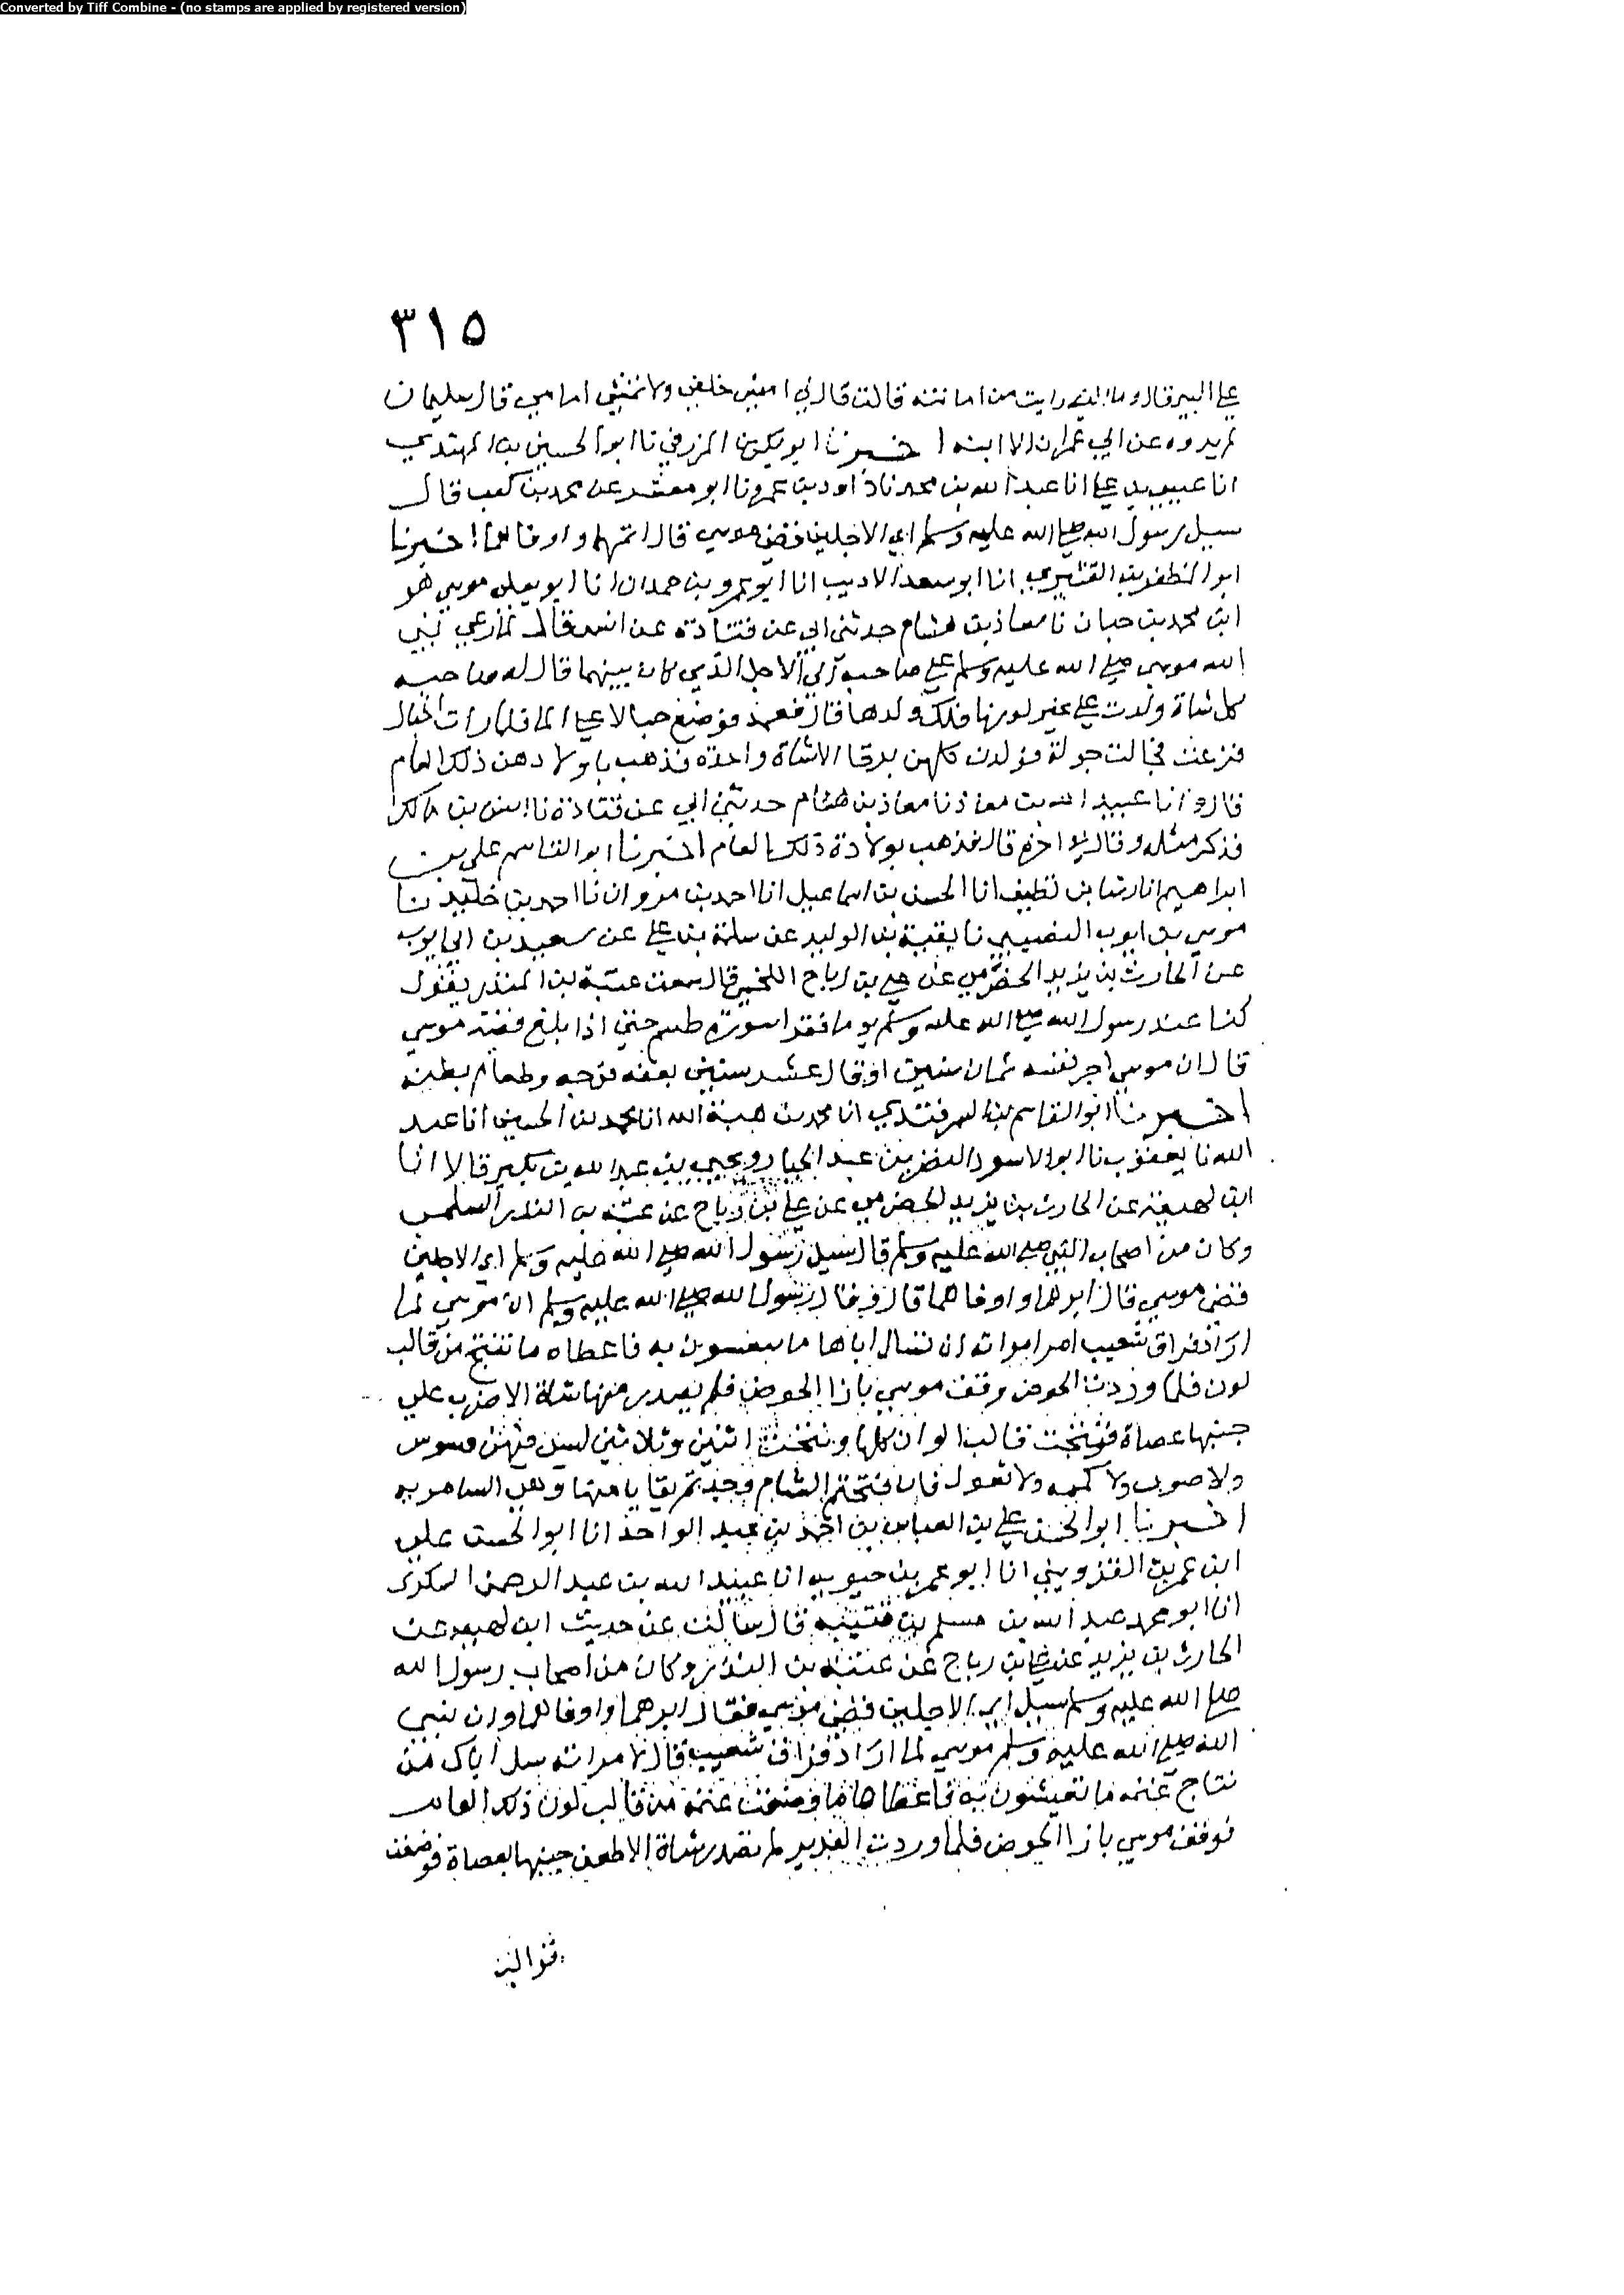 Converted by Tiff Combine - (no stamps are applied by registered version)
٣١٥
علي البير قال وما الذي رايت من امانته قالت قال لي امشي خلفي ولا تمشي امامي قال سليمان
لم يروه عن ابي عمران الا ابنه اخبرنا ابو بكر بن المزرفي نا ابو الحسين بن المهتدي
انا عيسى بن علي انا عبد الله بن محمد نا داود بن عمرو نا ابو معشر عن محمد بن كعب قال
سيل رسول الله صلي الله عليه وسلم اي الاجلين قضى موسي قال اتمهما واوفاهما اخبرنا
ابو المظفر بن القشيري انا ابو سعد الاديب انا ابو عمرو بن حمدان انا ابو يعلى موسي هو
ابن محمد بن حبان نا معاذ بن هشام حدثني ابي عن قتادة عن انس قال لما دعي نبي
الله موسي صلي الله عليه وسلم علي صاحبه الي الاجل الذي كان بينهما قال له صاحبه
كل شاة ولدت علي غير لونها فلك ولدها قال فعمد فوضع حبالا علي الما فلما رات الحبال
فزعت فجالت جولة فولدن كلهن بلقا الا شاة واحدة فذهب باولادهن ذلك العام
قال ونا عبيد الله بن معاذ نا معاذ بن هشام حدثني ابي عن قتادة نا انس بن مالك
فذكر مثله وقال في اخره قال فذهب بولادة ذلك العام اخبرنا ابو القاسم علي بن
ابراهيم انا رشا بن نظيف انا الحسن بن اسماعيل انا احمد بن مروان نا احمد بن خليد نا
موسي بن ايوب النصيبي نا بقية بن الوليد عن سلمة بن علي عن سعيد بن ابي ايوب
عن الحارث بن يزيد الحضرمي عن علي بن رباح اللخمي قال سمعت عتبة بن المنذر يقول
كنا عند رسول الله صلي الله عليه وسلم يوما فقرا سورة طسم حتي اذا بلغ قصة موسي
قال ان موسي اجر نفسه ثمان سنين او قال عشر سنين بعفة فرجه وطعام بطنه
اخبرنا ابو القاسم بن السمرقندي انا محمد بن هبة الله انا محمد بن الحسين انا عبد
الله نا يعقوب نا ابو الاسود النضر بن عبد الجبار ويحيي بن عبد الله بن بكير قالا انا
ابن لهيعة عن الحارث بن يزيد الحضرمي عن علي بن رباح عن عتبة بن الندر السلمي
وكان من اصحاب النبي صلي الله عليه وسلم قال سيل رسول الله صلي الله عليه وسلم اي الاجلين
قضى موسي قال ابرهما واوفاهما قال وقال رسول الله صلي الله عليه وسلم ان موسي لما
اراد فراق شعيب امر امراته ان تسال اباها ما يعيشون به فاعطاه ما نتجت من قالب
لون فلما وردت الحوض وقف موسي بازا الحوض فلم يصدر منها شاة الا ضرب علي
جنبها عصاة فنتجت قالب الوان كلها ونتجت اثنين وثلاثين ليس فيهن
ولا ولا ولا ثعول فان فتحتم الشام وجدتم بقايا منها وهي السامرية
اخبرنا ابو الحسن علي بن العباس بن احمد بن عبد الواحد انا ابو الحسن علي
ابن عمر بن القزويني انا ابو عمر بن حيويه انا عبيد الله بن عبد الرحمن السكري
انا ابو محمد عبد الله بن مسلم بن قتيبة قال سالت عن حديث ابن لهيعة عن
الحارث بن يزيد عن علي بن رباح عن عتبة بن الندر وكان من اصحاب رسول الله
صلي الله عليه وسلم سيل اي الاجلين قضى موسي فقال ابرهما واوفاهما وان نبي
الله صلي الله عليه وسلم موسي لما اراد فراق شعيب قال لامراته سل اباك من
نتاج غنمه ما نعيشون به فاعطاها ما وضعت غنمه من قالب لون ذلك العام
فوقف موسي بازا الحوض فلما وردت الغدير لم تصدر شاة الا طعن جنبها بعصاة فوضعت
قوالب